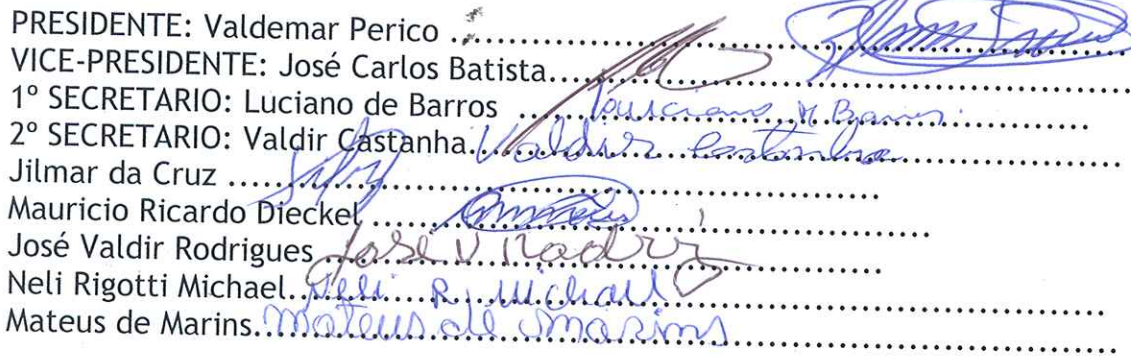 PRESIDENTE: Valdemar Perico ......................................................
VICE-PRESIDENTE: José Carlos Batista......................................................
1º SECRETARIO: Luciano de Barros ...... Luiciano M Barros ......
2º SECRETARIO: Valdir Castanha. Valdir Castanha ......
Jilmar da Cruz ......................................................
Mauricio Ricardo Dieckel ......................................................
José Valdir Rodrigues José V Rodri ......
Neli Rigotti Michael.. Neli R. Michael ......
Mateus de Marins. Mateus de Marins ......